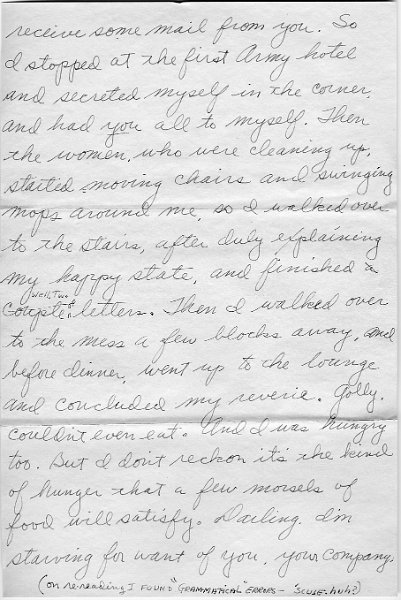 receive some mail from you. So
I stopped at the first Army hotel
and secreted myself in the corner,
and had you all to myself. Then
the women, who were cleaning up,
started moving chairs and swinging
mops around me, so I walked over
to the stairs, after duly explaining
my happy state, and finished a
well, two
couple of letters. Then I walked over
to the mess a few blocks away, and
before dinner, went up to the lounge
and concluded my reverie. Golly.
couldn't even eat. And I was hungry
too. But I don't reckon it's the kind
of hunger that a few morsels of
food will satisfy. Darling. I'm
starving for want of you, your company,
(on re-reading I FOUND "GRAMMATICAL" ERRORS - 'SCUSE. huh?)